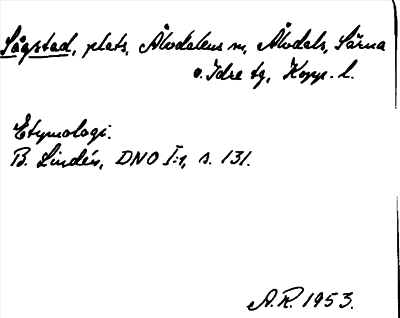 Sågstad, plats, Älvdalens m, Älvdals, Särna
o. Idre tg, Kopp. l.
Etymologi.
B. Lindén, DNO I:1, s. 131.
A.R. 1953.